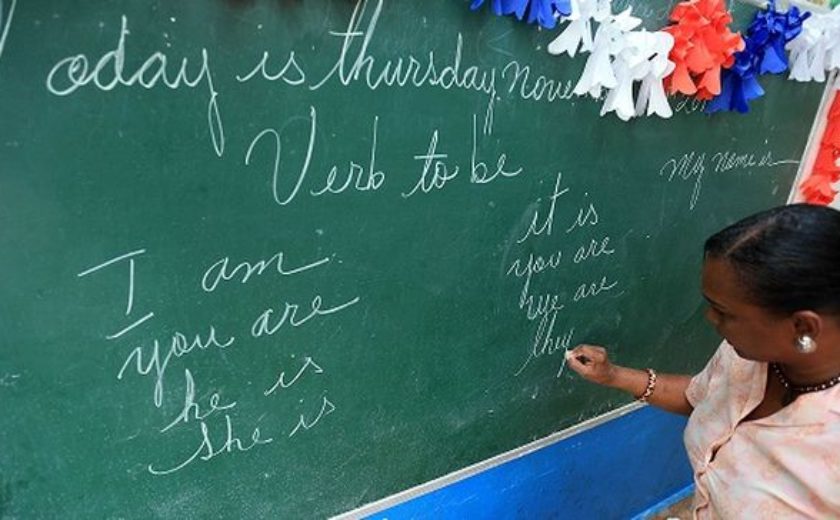 Today is thursday, Nove
Verb to be
My name is
I am
you are
he is
She is
it is
you are
we are
they